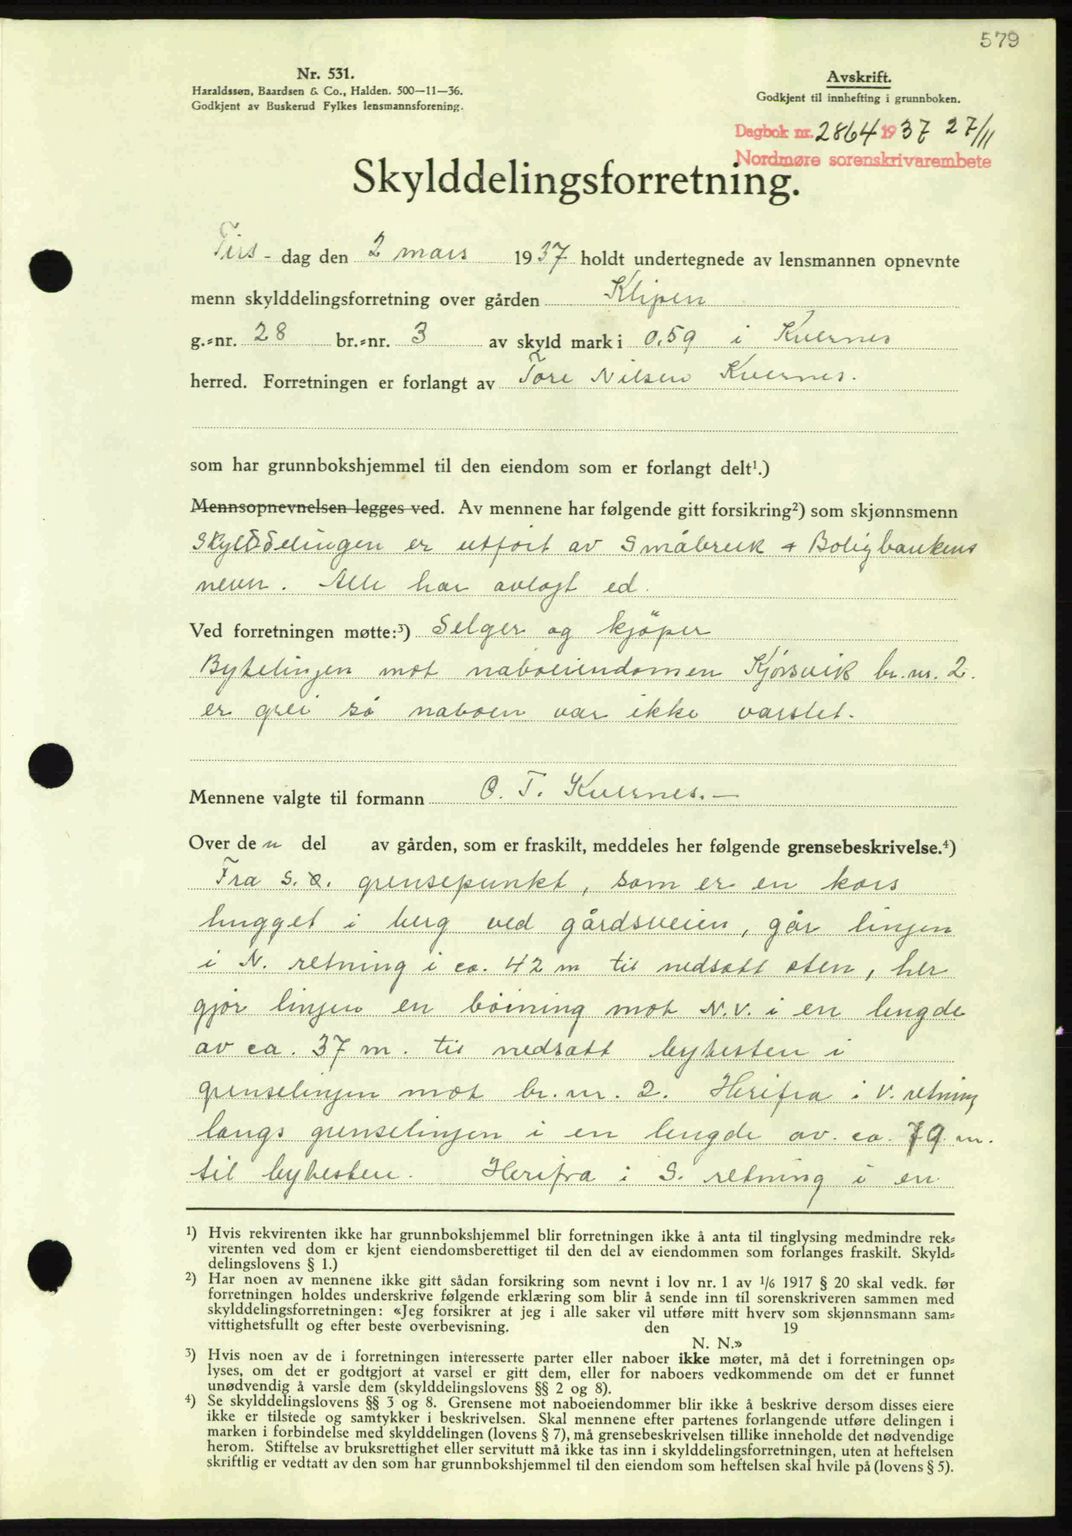 579
Nr. 531.
Haraldssøn, Baardsen & Co., Halden. 500—11—36.
Godkjent av Buskerud Fylkes lensmannsforening.
Avskrift.
Godkjent til innhefting i grunnboken.
Dagbok nr. 2864 1937 27/11
Nordmøre sorenskrivarembete
Skylddelingsforretning.
Tirs- dag den 2 mars 1937 holdt undertegnede av lensmannen opnevnte
menn skylddelingsforretning over gården Klipen
g.=nr. 28 br.=nr. 3 av skyld mark i 0,59 i Kvernes
herred. Forretningen er forlangt av Tore Nilsen Kvernes.
som har grunnbokshjemmel til den eiendom som er forlangt delt¹.)
Mennsopnevnelsen legges ved. Av mennene har følgende gitt forsikring²) som skjønnsmenn
Skylddelingen er utført av Småbruk & Boligbankens
nevn. Alle har avlagt ed.
Ved forretningen møtte:³) Selger og kjöper
Bytelinjen mot naboeiendomen Kjørsvik br. nr. 2.
er grei så naboen var ikke varslet.
Mennene valgte til formann O. T. Kvernes.—
Over den del av gården, som er fraskilt, meddeles her følgende grensebeskrivelse.⁴)
Fra s. ø. grensepunkt, som er en kors
hugget i berg ved gårdsveien, går linjen
i N. retning i ca. 42 m til nedsatt sten, her
gjör linjen en böining mot N.V. i en lengde
av ca. 37 m. til nedsatt bytesten i
grenselinjen mot br. nr. 2. Herifra i V. retning
langs grenselinjen i en lengde av ca. 79 m.
til bytesten. Herifra i S. retning i en
¹) Hvis rekvirenten ikke har grunnbokshjemmel blir forretningen ikke å anta til tinglysing medmindre rek=
virenten ved dom er kjent eiendomsberettiget til den del av eiendommen som forlanges fraskilt. Skyld=
delingslovens § 1.)
²) Har noen av mennene ikke gitt sådan forsikring som nevnt i lov nr. 1 av 1/6 1917 § 20 skal vedk. før
forretningen holdes underskrive følgende erklæring som blir å sende inn til sorenskriveren sammen med
skylddelingsforretningen: «Jeg forsikrer at jeg i alle saker vil utføre mitt hverv som skjønnsmann sam=
vittighetsfullt og efter beste overbevisning. den 19
N. N.»
³) Hvis noen av de i forretningen interesserte parter eller naboer ikke møter, må det i forretningen op=
lyses, om det er godtgjort at varsel er gitt dem, eller for naboers vedkommende om det er funnet
unødvendig å varsle dem (skylddelingslovens §§ 2 og 8).
⁴) Se skylddelingslovens §§ 3 og 8. Grensene mot naboeiendommer blir ikke å beskrive dersom disses eiere
ikke er tilstede og samtykker i beskrivelsen. Skal mennene efter partenes forlangende utføre delingen i
marken i forbindelse med skylddelingen (lovens § 7), må grensebeskrivelsen tillike inneholde det nødvendige
herom. Stiftelse av bruksrettighet eller servitutt må ikke tas inn i skylddelingsforretningen, uten at heftelsen
skriftlig er vedtatt av den som har grunnbokshjemmel til den eiendom som heftelsen skal hvile på (lovens § 5).